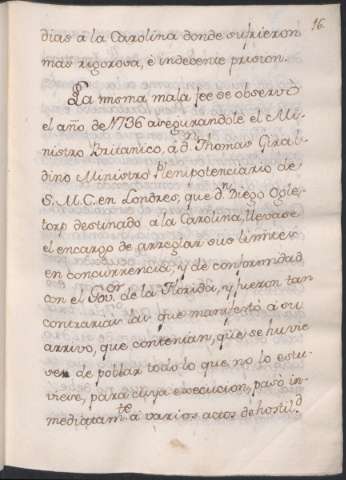 16.
dias a la Carolina donde sufrieron
mas rigorosa, è indecente prision.
La misma mala fee se observó
el año de 1736 asegurandole el Mi-
nistro Britanico, á dn. Thomas Giral-
dino Ministro Plenipotenciario de
S. M. C. en Londres, que dn. Diego Ogle-
torp destinado a la Carolina, llevase
el encargo de arreglar sus limites
en concurrencia, y de conformidad
con el Govor. de la Florida, y fueron tan
contrarias las que manifestó á su
arrivo, que contenian, que se huvie
sen de poblar todo lo que no lo estu-
viese, para cuya execucion, pasó in-
mediatamte. á varios actos de hostild.